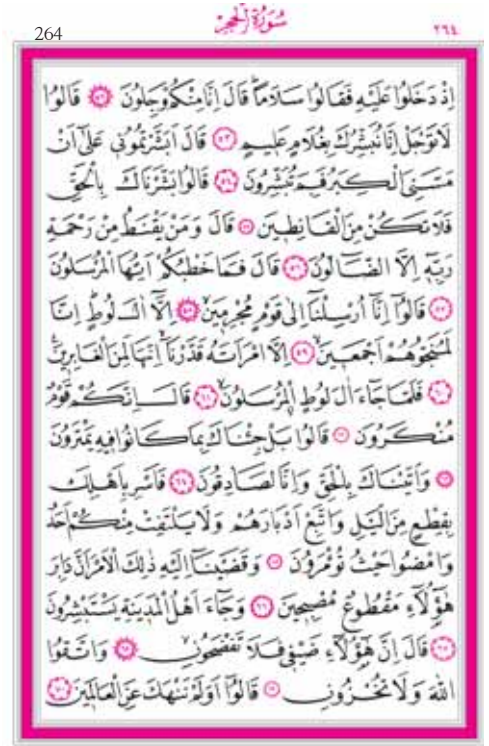 264 سُورَةُ الْحِجْرِ ٢٦٤
اِذْ دَخَلُوا عَلَيْهِ فَقَالُوا سَلَامًاۜ قَالَ اِنَّا مِنْكُمْ وَجِلُونَ ﴿٥٢﴾ قَالُوا
لَا تَوْجَلْ اِنَّا نُبَشِّرُكَ بِغُلَامٍ عَلٖيمٍ ﴿٥٣﴾ قَالَ اَبَشَّرْتُمُونٖى عَلٰٓى اَنْ
مَسَّنِىَ الْكِبَرُ فَبِمَ تُبَشِّرُونَ ﴿٥٤﴾ قَالُوا بَشَّرْنَاكَ بِالْحَقِّ
فَلَا تَكُنْ مِنَ الْقَانِطٖينَ ﴿٥٥﴾ قَالَ وَمَنْ يَقْنَطُ مِنْ رَحْمَةِ
رَبِّهٖٓ اِلَّا الضَّٓالُّونَ ﴿٥٦﴾ قَالَ فَمَا خَطْبُكُمْ اَيُّهَا الْمُرْسَلُونَ
﴿٥٧﴾ قَالُٓوا اِنَّٓا اُرْسِلْنَٓا اِلٰى قَوْمٍ مُجْرِمٖينَۙ ﴿٥٨﴾ اِلَّٓا اٰلَ لُوطٍۜ اِنَّا
لَمُنَجُّوهُمْ اَجْمَعٖينَۙ ﴿٥٩﴾ اِلَّا امْرَاَتَهُ قَدَّرْنَٓاۙ اِنَّهَا لَمِنَ الْغَابِرٖينَ۟
﴿٦٠﴾ فَلَمَّا جَٓاءَ اٰلَ لُوطٍۨ الْمُرْسَلُونَۙ ﴿٦١﴾ قَالَ اِنَّكُمْ قَوْمٌ
مُنْكَرُونَ ﴿٦٢﴾ قَالُوا بَلْ جِئْنَاكَ بِمَا كَانُوا فٖيهِ يَمْتَرُونَ
﴿٦٣﴾ وَاَتَيْنَاكَ بِالْحَقِّ وَاِنَّا لَصَادِقُونَ ﴿٦٤﴾ فَاَسْرِ بِاَهْلِكَ
بِقِطْعٍ مِنَ الَّيْلِ وَاتَّبِعْ اَدْبَارَهُمْ وَلَا يَلْتَفِتْ مِنْكُمْ اَحَدٌ
وَامْضُوا حَيْثُ تُؤْمَرُونَ ﴿٦٥﴾ وَقَضَيْنَٓا اِلَيْهِ ذٰلِكَ الْاَمْرَ اَنَّ دَابِرَ
هٰٓؤُ۬لَٓاءِ مَقْطُوعٌ مُصْبِحٖينَ ﴿٦٦﴾ وَجَٓاءَ اَهْلُ الْمَدٖينَةِ يَسْتَبْشِرُونَ
﴿٦٧﴾ قَالَ اِنَّ هٰٓؤُ۬لَٓاءِ ضَيْفٖى فَلَا تَفْضَحُونِۙ ﴿٦٨﴾ وَاتَّقُوا
اللّٰهَ وَلَا تُخْزُونِ ﴿٦٩﴾ قَالُٓوا اَوَلَمْ نَنْهَكَ عَنِ الْعَالَمٖينَ ﴿٧٠﴾